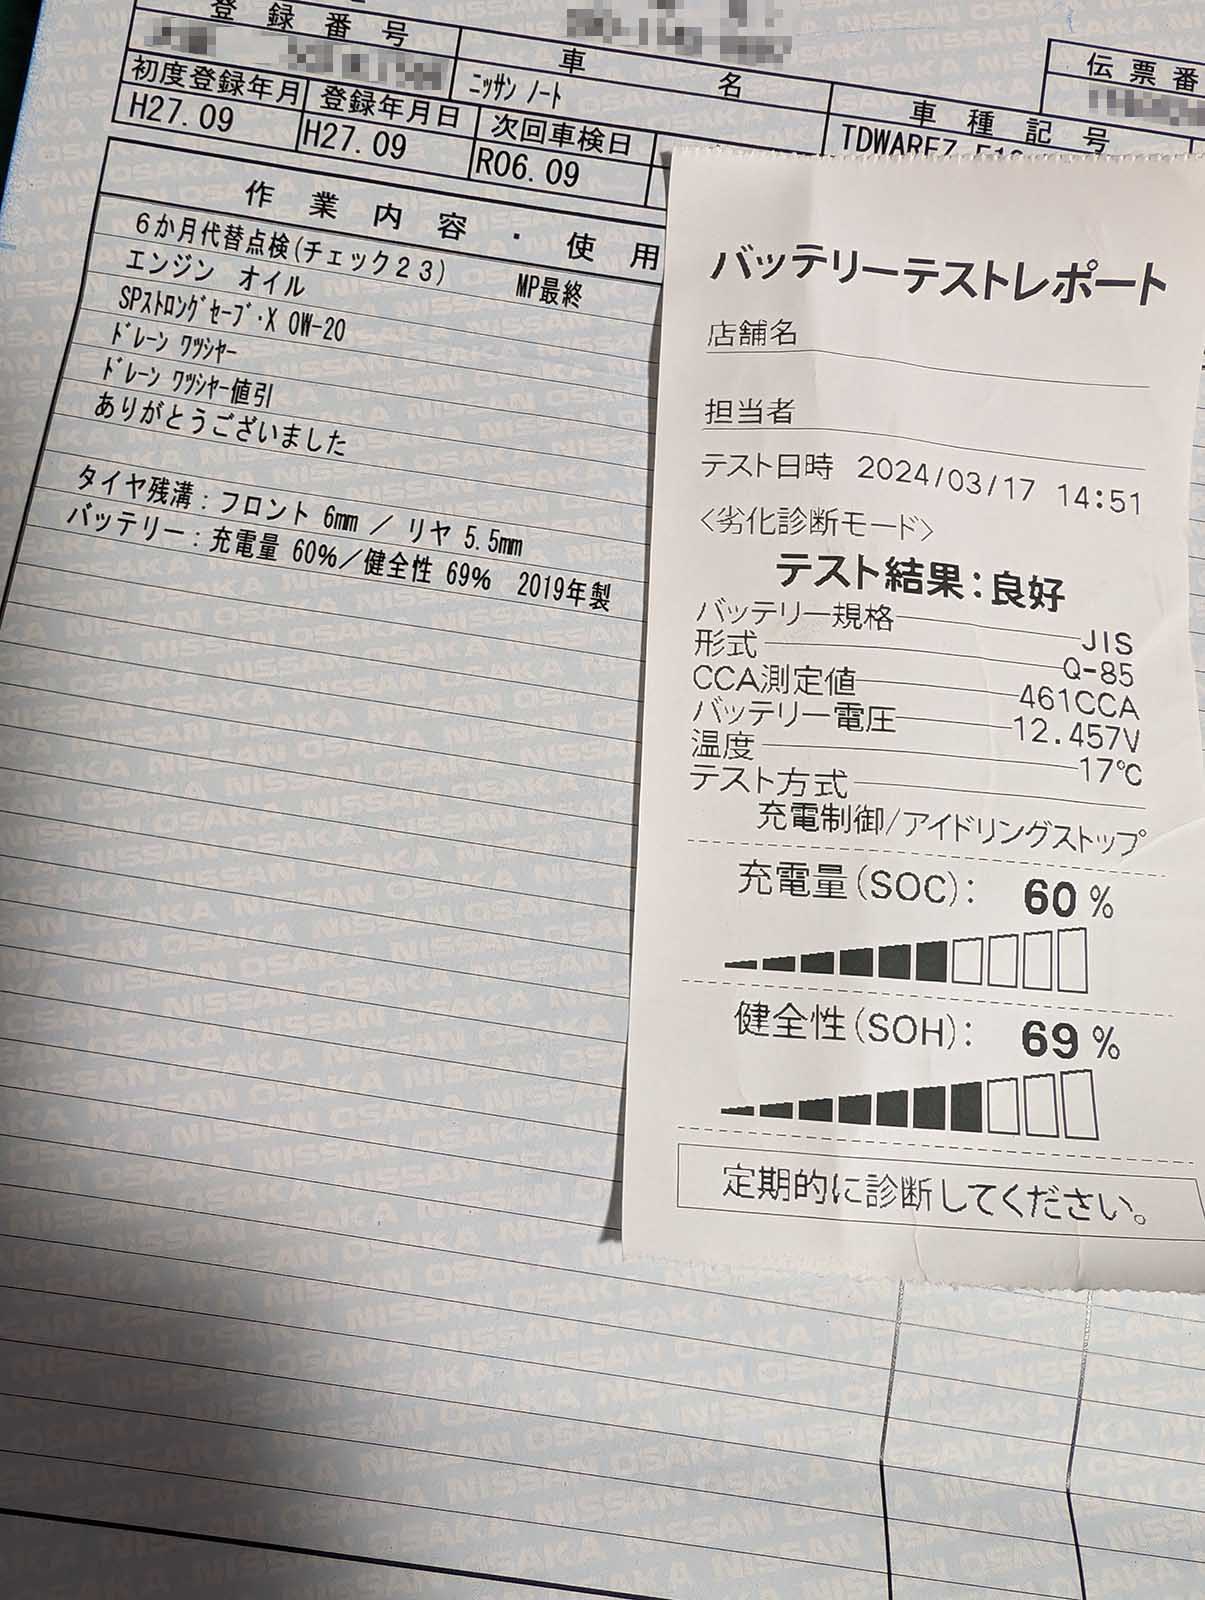 登録番号
車名
伝票番
ニッサン ノート
初度登録年月
登録年月日
次回車検日
車種記号
H27.09
H27.09
R06.09
TDWARF7
作業内容・使用
6か月代替点検(チェック23) MP最終
エンジン オイル
SPストロングセーブ・X 0W-20
ドレーン ワツシヤー
ドレーン ワツシヤー値引
ありがとうございました
タイヤ残溝:フロント 6mm / リヤ 5.5mm
バッテリー:充電量 60%/健全性 69% 2019年製
バッテリーテストレポート
店舗名
担当者
テスト日時 2024/03/17 14:51
<劣化診断モード>
テスト結果:良好
バッテリー規格 JIS
形式 Q-85
CCA測定値 461CCA
バッテリー電圧 12.457V
温度 17℃
テスト方式
充電制御/アイドリングストップ
充電量(SOC): 60%
健全性(SOH): 69%
定期的に診断してください。
NISSAN OSAKA